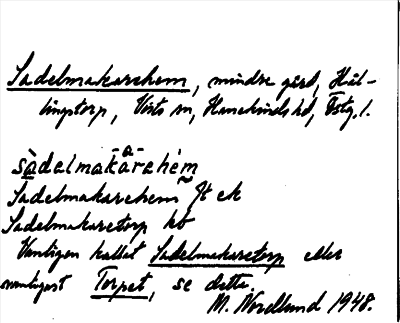 Sadelmakarehem, mindre gård, Häl-
lingstorp, Vists sn, Hanekinds hd, Östg. l.
sàdelmakarehém
Sadelmakarehem Jt ek
Sadelmakaretorp hb
Vanligen kallat Sadelmakaretorp eller
vanligast Torpet, se detta.
M. Nordlund 1948.